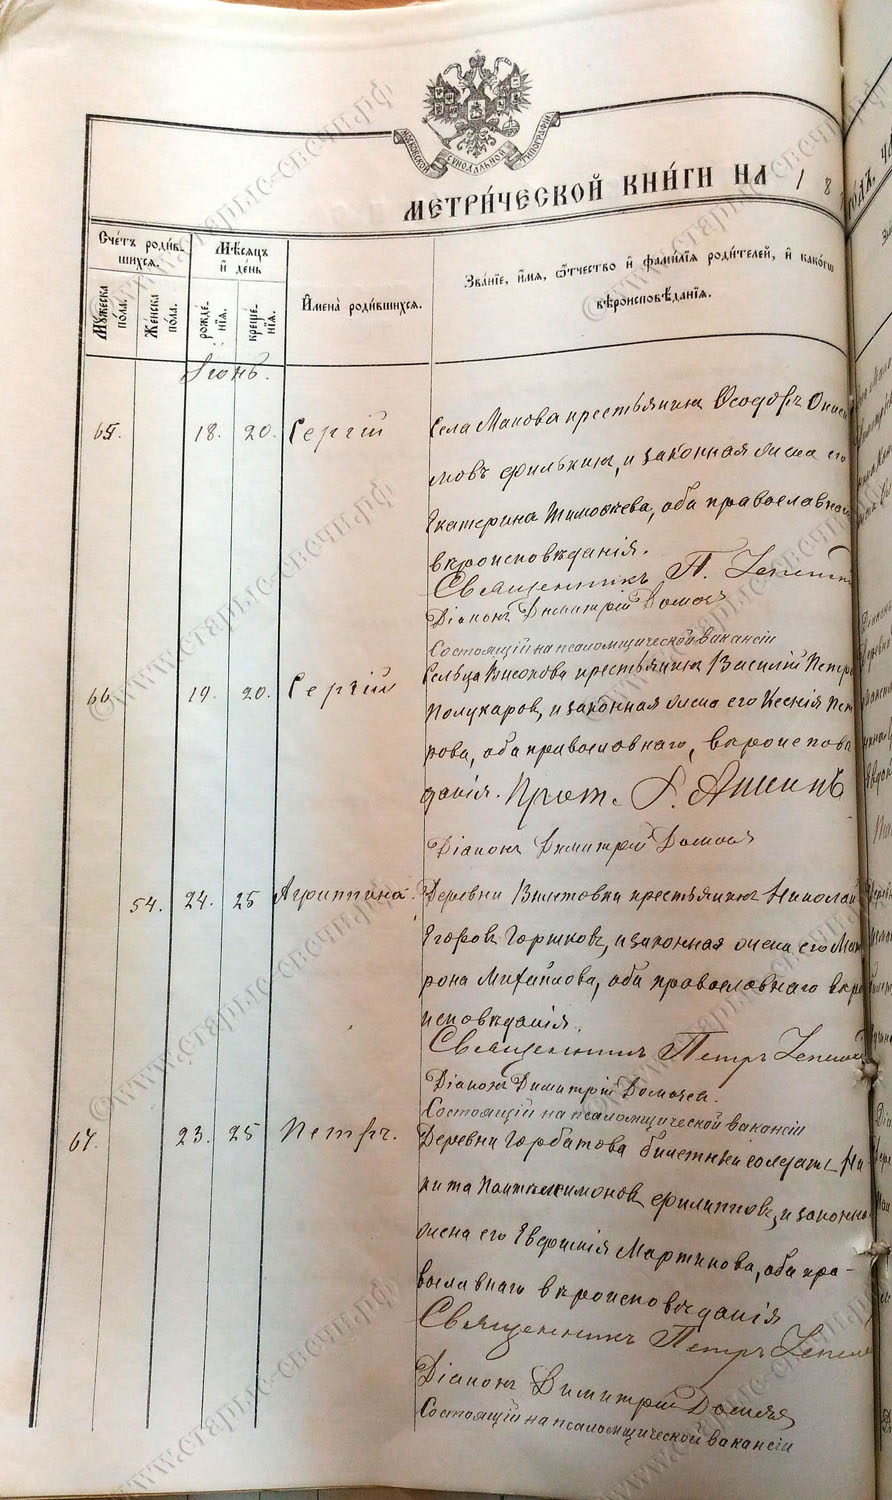 МОСКОВСКОЙ СѴНОДАЛЬНОЙ ТИПОГРАФІИ
МЕТРИ́ЧЕСКОЙ КНИ́ГИ НА 18
Сче́тъ роди́в-
шихся.
Мѣ́сяцъ
и҆ де́нь
Му́жеска
по́ла.
Же́нска
по́ла.
рожде́-
нїѧ.
креще-
нїѧ.
И҆мена̀ роди́вшихся.
Зва́нїе, и҆́мя, ѻ҆́тчество и҆ фами́лїя роди́телей, и҆ како́гѡ
вѣроисповѣ́данїѧ.
Іюнь.
65. 18. 20. Сергій Села Макова крестьянинъ Ѳеодоръ Ониси
мовъ Филькинъ, и законная жена его
Екатерина Тимоѳеева, оба православнаго
вѣроисповѣданія.
Священникъ П.
Діаконъ Димитрій
Состоящій на псаломщической вакансіи
66 19. 20. Сергій Сельца Высокова крестьянинъ Василій Петро
Полукаровъ, и законная жена его Ксенія Пет
рова, оба православнаго, вѣроиспове
данія. Прот.
Діаконъ Димитрій
54. 24. 25 Агриппина. Деревни крестьянинъ Николай
Егоровъ Горшковъ, и законная жена его Мат
рона Михайлова, оба православнаго вѣро
исповѣданія.
Священникъ Петръ
Діаконъ Димитрій
Состоящій на псаломщической вакансіи
67. 23. 25 Петръ. Деревни Горбатова билетный солдатъ Ни
кита Филипповъ, и законная
жена его Евфимія Мартинова, оба пра-
вославнаго вѣроисповѣданія
Священникъ Петръ
Діаконъ Димитрій
Состоящій на псаломщической вакансіи
©www.старые-свечи.рф